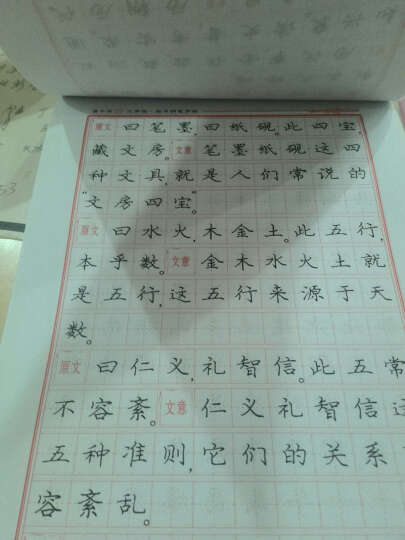 原文 曰笔墨,曰纸砚。此四宝,
藏文房。 文意 笔墨纸砚这四
种文具,就是人们常说的
“文房四宝”。
原文 曰水火,木金土。此五行,
本乎数。 文意 金木水火土就
是五行,这五行来源于天
数。
原文 曰仁义,礼智信。此五常
不容紊。 文意 仁义礼智信这
五种准则,它们的关系
容紊乱。